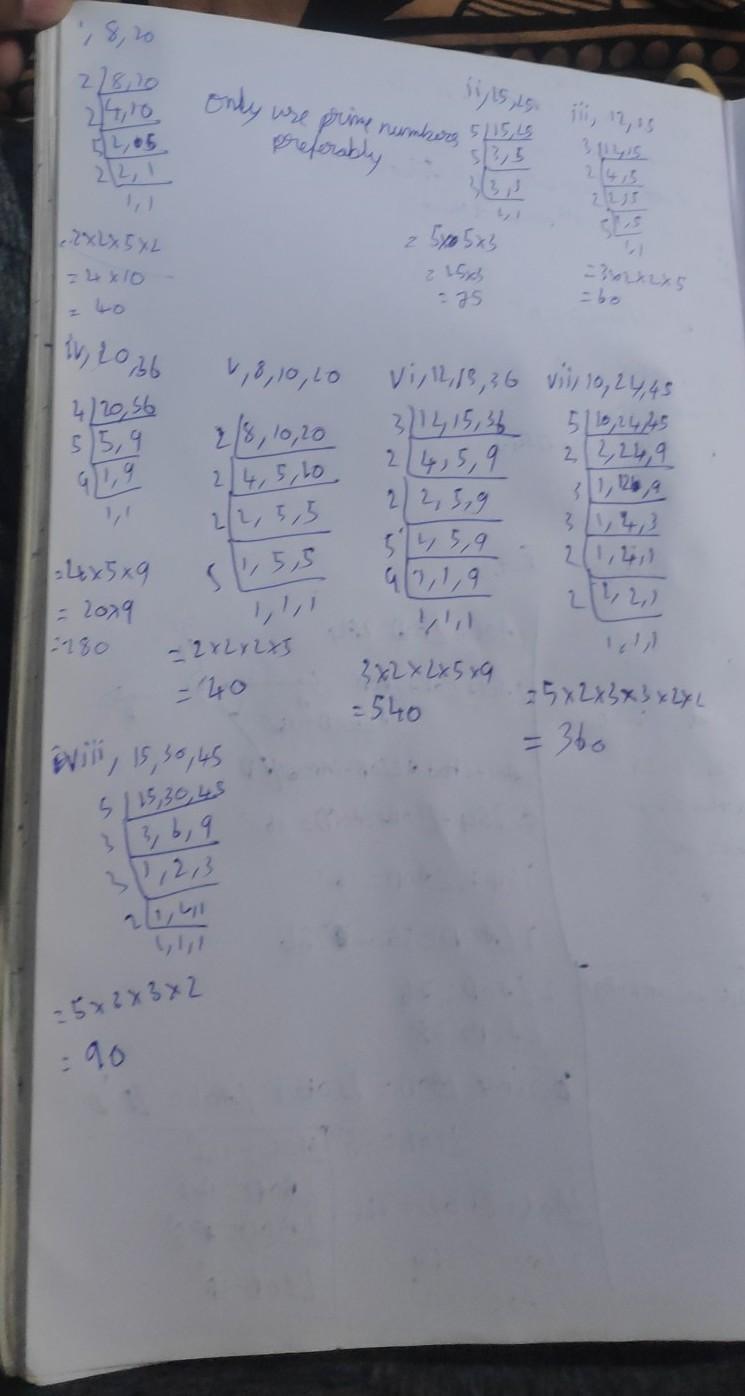 i, 8,20
2 8,20
2 4,10
5 2,5
2 2,1
1,1
=2x2x5x2
=4x10
= 40
Only use prime numbers
preferably
ii,15,25
5 15,25
5 3,5
3 3,1
1,1
= 5x5x3
= 25x3
= 75
iii, 12,15
3 12,15
2 4,5
2 2,5
5 1,5
1,1
=3x2x2x5
=60
iv, 20,36
4 20,36
5 5,9
9 1,9
1,1
=4x5x9
= 20x9
=180
v, 8,10,20
2 8,10,20
2 4,5,10
2 2,5,5
5 1,5,5
1,1,1
=2x2x2x5
= 40
vi, 12,15,36
3 12,15,36
2 4,5,9
2 2,5,9
5 1,5,9
9 1,1,9
1,1,1
3x2x2x5x9
=540
vii, 10,24,45
5 10,24,45
2 2,24,9
3 1,12,9
3 1,4,3
2 1,4,1
2 1,2,1
1,1,1
=5x2x3x3x2x2
= 360
viii, 15,30,45
5 15,30,45
3 3,6,9
3 1,2,3
2 1,2,1
1,1,1
=5x3x3x2
= 90